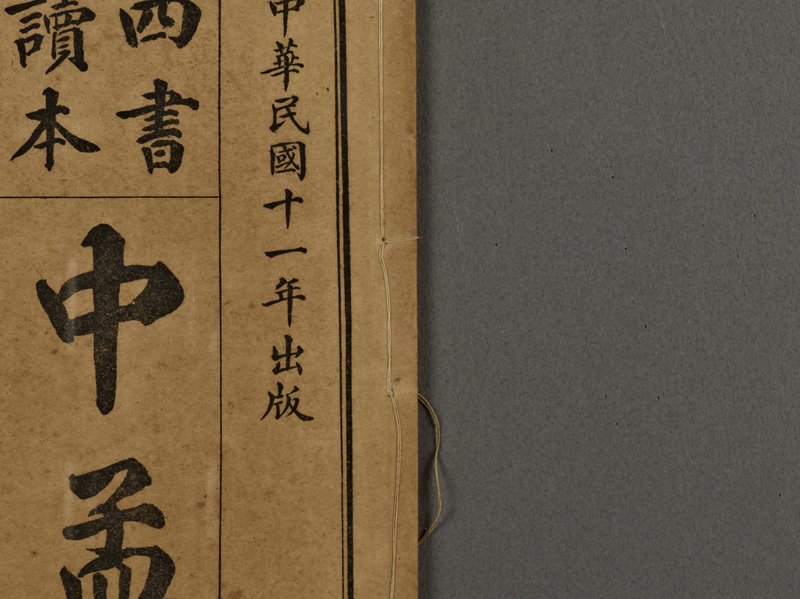 中華民國十一年出版
四書
讀本
中孟